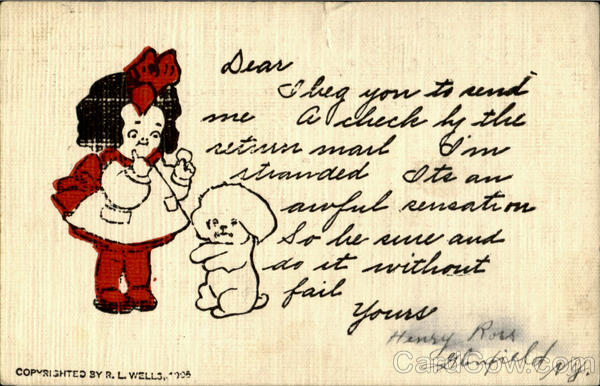 Dear
I beg you to send
me A check by the
return mail I'm
stranded Its an
awful sensation
So be sure and
do it without
fail
Yours
Henry Ross
N.J.
COPYRIGHTED BY R. L. WELLS, 1906
CardCow.com